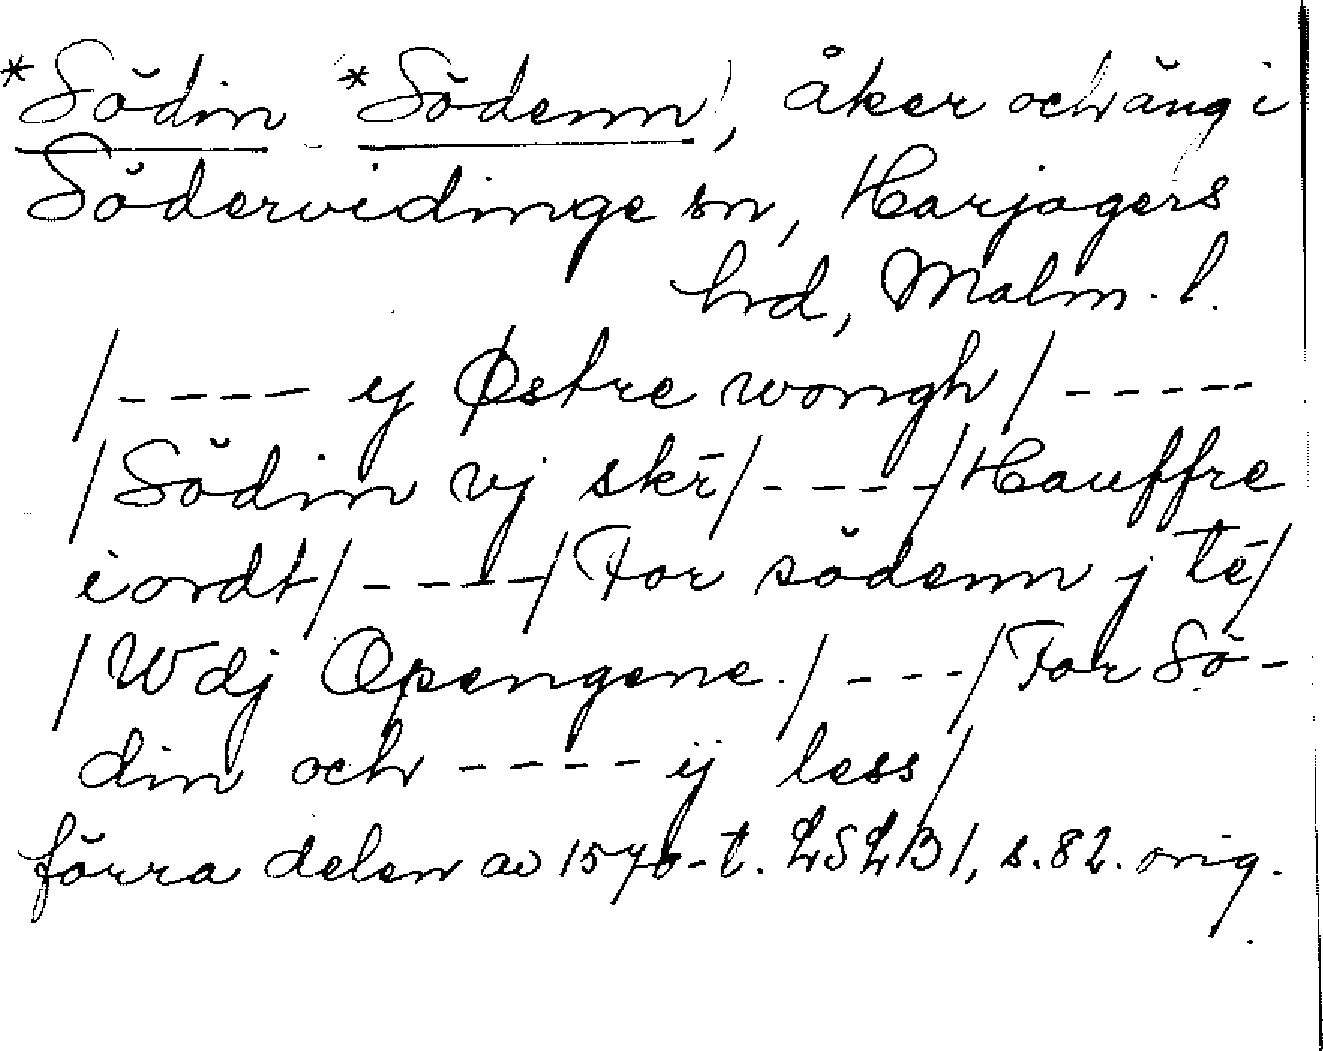 *Södin *Södenn, åker och äng i
Södervidinge sn, Harjagers
hrd, Malm. l.
/---- ij Østre wongh/-----
/Södin vj skr̄/----/Hauffre
iordt/----/For södenn j tē/
/Wdj Opengene./---/For Sö-
din och ---- ij less/
förra delen av 1570-t. LSLB1, s.82. orig.